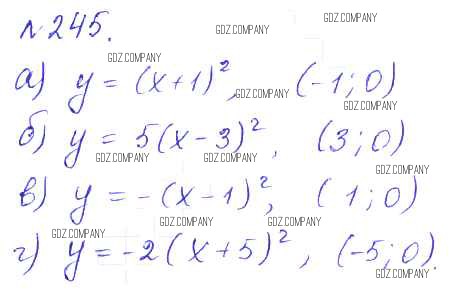 №245.
GDZ.COMPANY
GDZ.COMPANY
GDZ.COMPANY
а) y = (x+1)², (-1; 0)
GDZ.COMPANY
GDZ.COMPANY
б) y = 5(x-3)², (3; 0)
GDZ.COMPANY
GDZ.COMPANY
GDZ.COMPANY
в) y = -(x-1)², (1; 0)
GDZ.COMPANY
GDZ.COMPANY
GDZ.COMPANY
г) y = -2(x+5)², (-5; 0).
GDZ.COMPANY